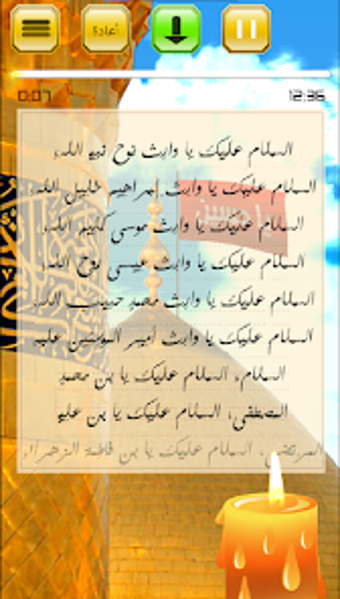 أعادة
0:07
12:36
السلام عليك يا وارث نوح نبيه الله،
السلام عليك يا وارث إبراهيم خليل الله،
السلام عليك يا وارث موسى كليم الله،
السلام عليك يا وارث عيسى روح الله،
السلام عليك يا وارث محمد حبيب الله،
السلام عليك يا وارث أمير المؤمنين عليه
السلام، السلام عليك يا بن محمد
المصطفى، السلام عليك يا بن علي
المرتضى، السلام عليك يا بن فاطمة الزهراء،